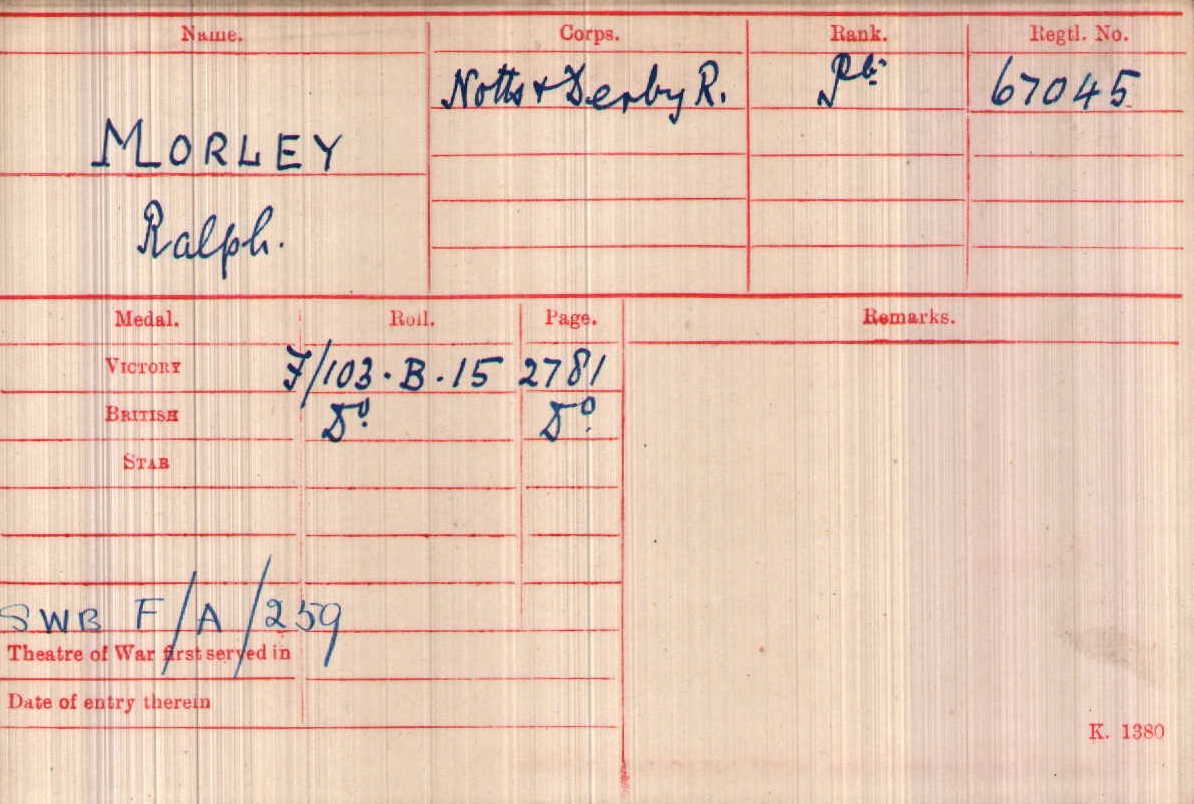 Name. Corps. Rank. Regtl. No.
Notts & Derby R. Pte. 67045
MORLEY
Ralph.
Medal. Roll. Page. Remarks.
VICTORY F/103.B.15 2781
BRITISH Do. Do.
STAR
SWB F/A/259
Theatre of War first served in
Date of entry therein
K. 1380